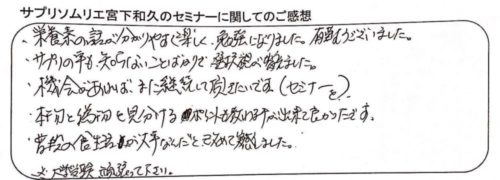 サプリソムリエ宮下和久のセミナーに関してのご感想
・栄養素の話が分かりやすく楽しく、勉強になりました。有難うございました。
・サプリの事も知らないことばかりで選択肢が増えました。
・機会があれば、また継続して居きたいです(セミナーを)
・本物と偽物を見分ける も教わる事が出来て良かったです。
・普段の食生活が大事なんだと改めて感じました。
大学 頑張って下さい。